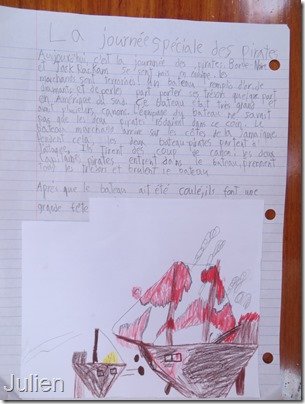 La journée spéciale des pirates
Aujourd'hui c'est la journée des pirates. Barbe-Noire
et Jack Rackam se sont
marchands sont terrorisés. Un bateau rempli d'or, de
diamants et de perles part porter ses trésors quelque part
en Amérique du Sud. Ce bateau était très grand et
avait plusieurs canons. L'équipage du bateau ne savait
pas que les deux pirates étaient dans ce coin. Le
bateau marchand arrive sur les côtes de la Jamaïque
pendant cela les deux bateau pirates partent à
Ils tirent des coup de canon, les deux
capitaines pirates entrent dans le bateau, prennent
tout les trésors et brulent ce bateau.
Après que le bateau ait été coulé, ils font une
grande fête.
Julien